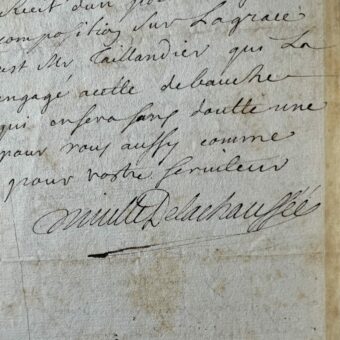 composition sur Lagrace
est Mr. Taillandier qui La
engagé acette debauche
qui ensera sans doutte une
pour vous aussy comme
pour vostre serviteur
Delachaussée